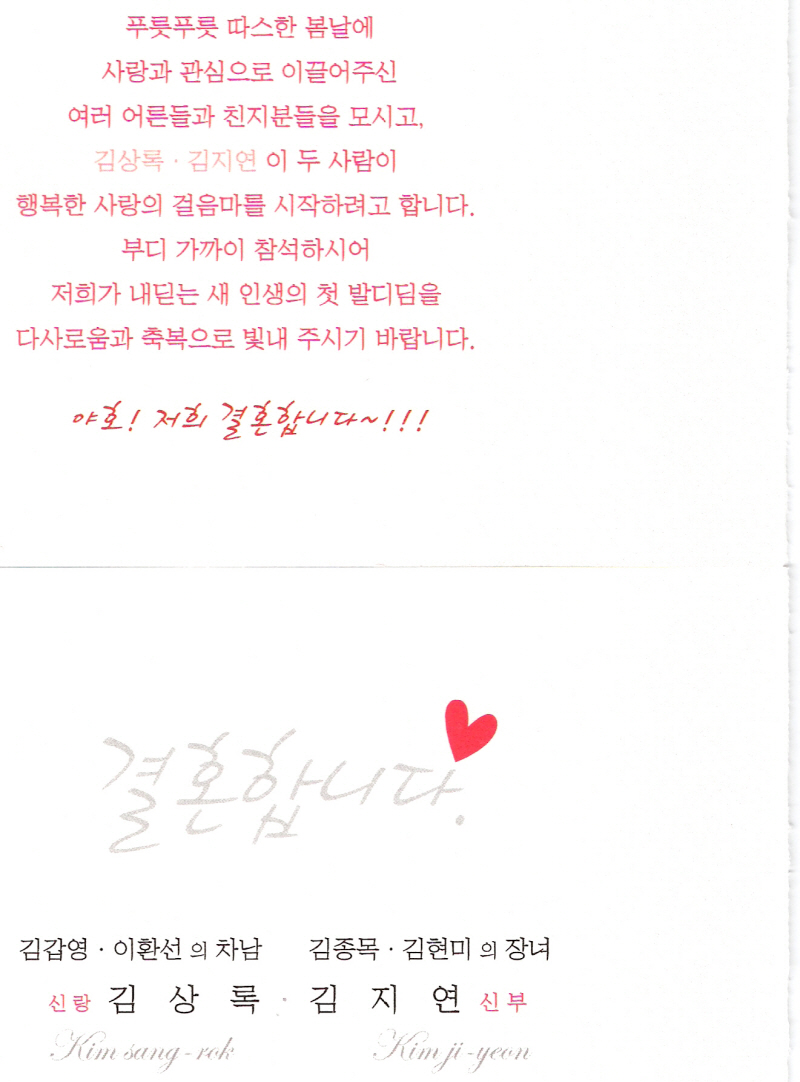 푸릇푸릇 따스한 봄날에
사랑과 관심으로 이끌어주신
여러 어른들과 친지분들을 모시고,
김상록 · 김지연 이 두 사람이
행복한 사랑의 걸음마를 시작하려고 합니다.
부디 가까이 참석하시어
저희가 내딛는 새 인생의 첫 발디딤을
다사로움과 축복으로 빛내 주시기 바랍니다.
야호! 저희 결혼합니다~!!!
결혼합니다.
김갑영 · 이환선 의 차남 김종목 · 김현미 의 장녀
신랑 김 상 록 · 김 지 연 신부
Kim sang-rok Kim ji-yeon